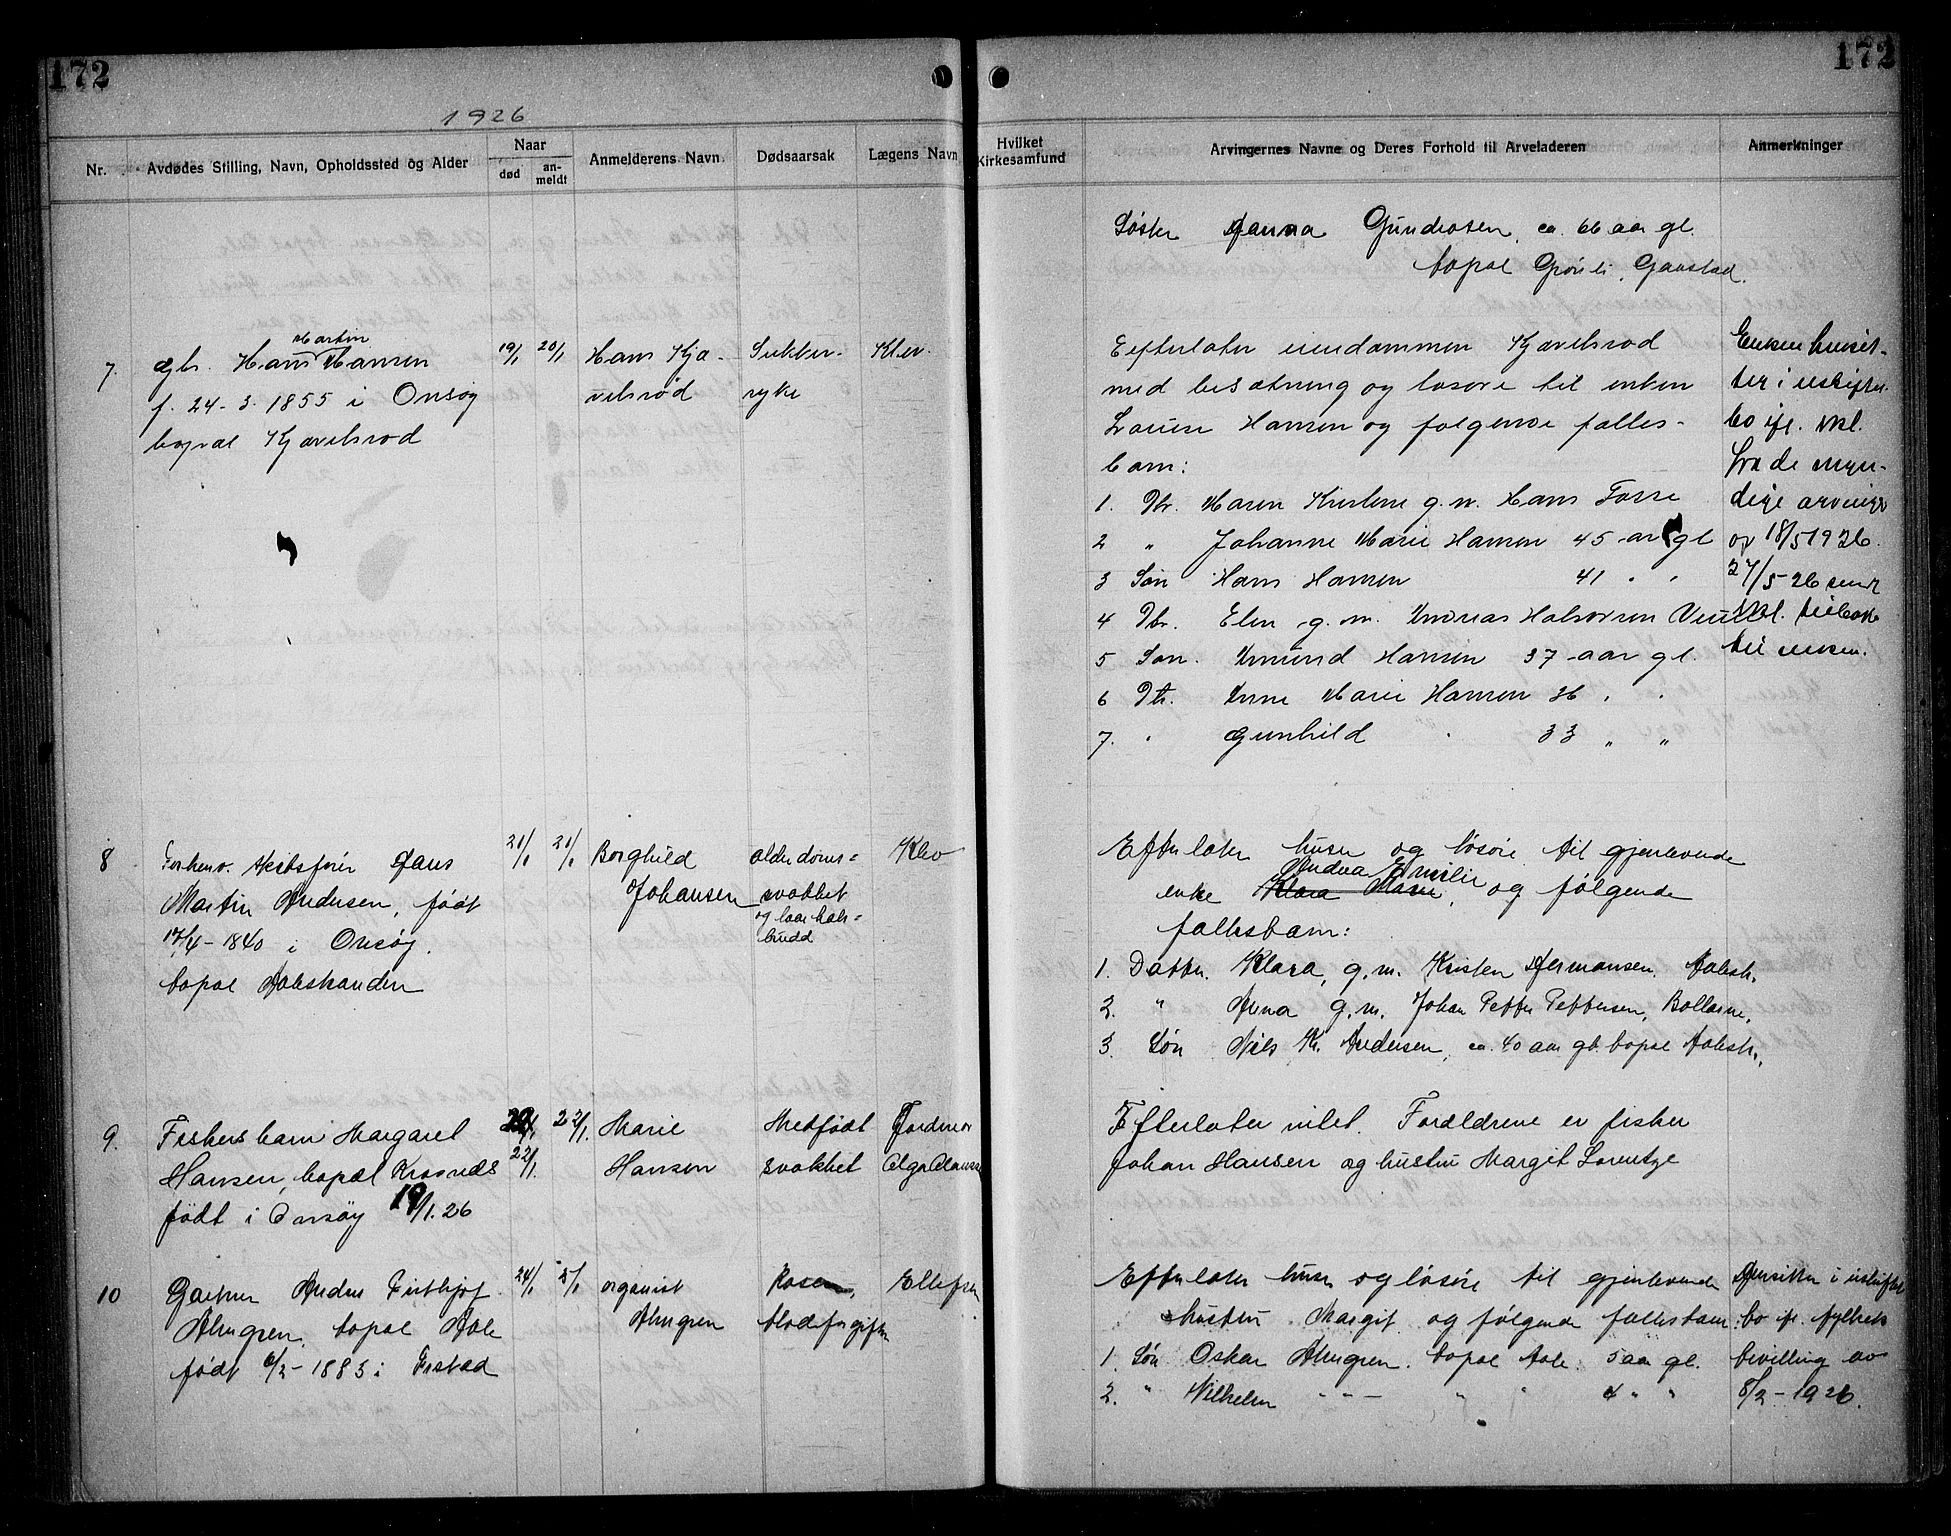 172
172
1926
Nr.
Avdødes Stilling, Navn, Opholdssted og Alder
Naar
død
an-
meldt
Anmelderens Navn
Dødsaarsak
Lægens Navn
Hvilket
Kirkesamfund
Arvingernes Navne og Deres Forhold til Arveladeren
Anmerkninger
Søster Hanna Gundersen, ca. 66 aar gl.
bopæl Grønli, Gaustad.
7.
Martin
gbr. Hans Hansen
f. 24-3. 1855 i Onsøy
bopæl Kjærelsrød
19/1
20/1
Hans Kjæ-
relsrød
Sukker-
syke
Klev.
Efterlater eiendommen Kjærelsrød
med besætning og løsøre til enken
Lovise Hansen og følgende fælles-
barn:
1. Dtr. Maren Kristine g.m. Hans Fosse
2 " Johanne Marie Hansen 45 aar gl
3 Søn Hans Hansen 41 " "
4 Dtr. Elen g.m. Andreas Halvorsen
5 Søn. Amund Hansen 37 aar gl.
6 Dtr. Anne Marie Hansen 36 " "
7. " Gunhild " 33 " "
Enken hensit-
ter i uskiftet
bo ifl. skl.
fra de myn-
dige arvinger
av 18/5 1926.
27/5-26 sendt
skl. tilbake
til enken.
8
Forhenv. skibsfører Hans
Martin Andersen, født
17/4-1840 i Onsøy.
bopæl Aalestranden
21/1
21/1
Borghild
Johansen
alderdoms=
svakhet
og laarhals=
brudd
Klev
Efterlater huser og løsøre til gjenlevende
Andrea Emilie
enke Klara Marie, og følgende
fællesbarn:
1. Datter. Klara, g.m. Kristen Hermansen. Aalestr.
2. " Anna g.m. Johan Petter Pettersen, Bollærne,
3. Søn Nils Kr. Andersen, ca. 40 aar gl. bopæl Aalestr.,
9.
Fiskers barn Margaret
Hansen, bopæl
født i Onsøy 19/1.26
22/1.
22/1.
Marie
Hansen
Medfødt
svakhet
Jordmor
Olga
Efterlater intet. Forældrene er fisker
Johan Hansen og hustru Margit Lorentze
10
Gartner Anders Frithjof
Almgren, bopæl Aale
født 6/2-1883 i
24/1
25/1
organist
Almgren
Rosen,
blodforgiftn
Ellefsen
Efterlater huser og løsøre til gjenlevende
hustru Margit og følgende fællesbarn:
1. Søn Oskar Almgren. bopæl Aale 5 aar gl.
2. " Wilhelm " " — " " 4 " "
Hensitter i uskiftet
bo ifl. fylkets
bevilling av
8/2-1926.